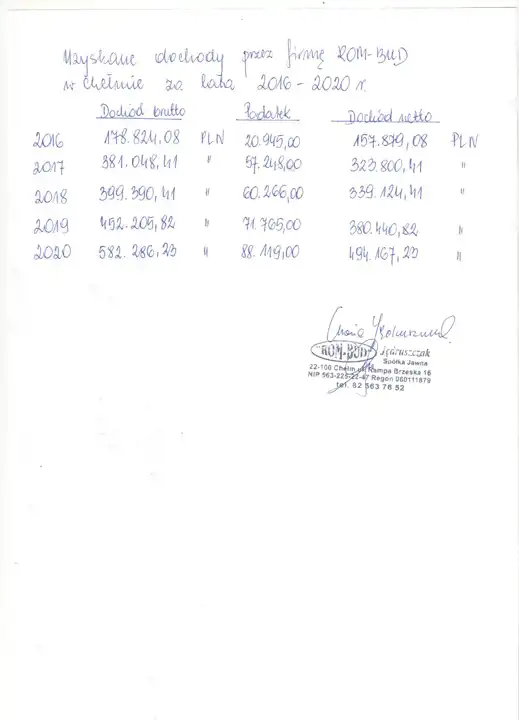 Uzyskane dochody przez firmę ROM-BUD
w Chełmie za lata 2016 - 2020 r.
Dochód brutto Podatek Dochód netto
2016 178.824,08 PLN 20.945,00 157.879,08 PLN
2017 381.048,41 " 57.248,00 323.800,41 "
2018 399.390,41 " 60.266,00 339.124,41 "
2019 452.205,82 " 71.765,00 380.440,82 "
2020 582.286,23 " 88.119,00 494.167,23 "
ROM-BUD
Spółka Jawna
22-100 Chełm, ul. Rampa Brzeska 16
Regon 060111879
tel. 82 563 76 52